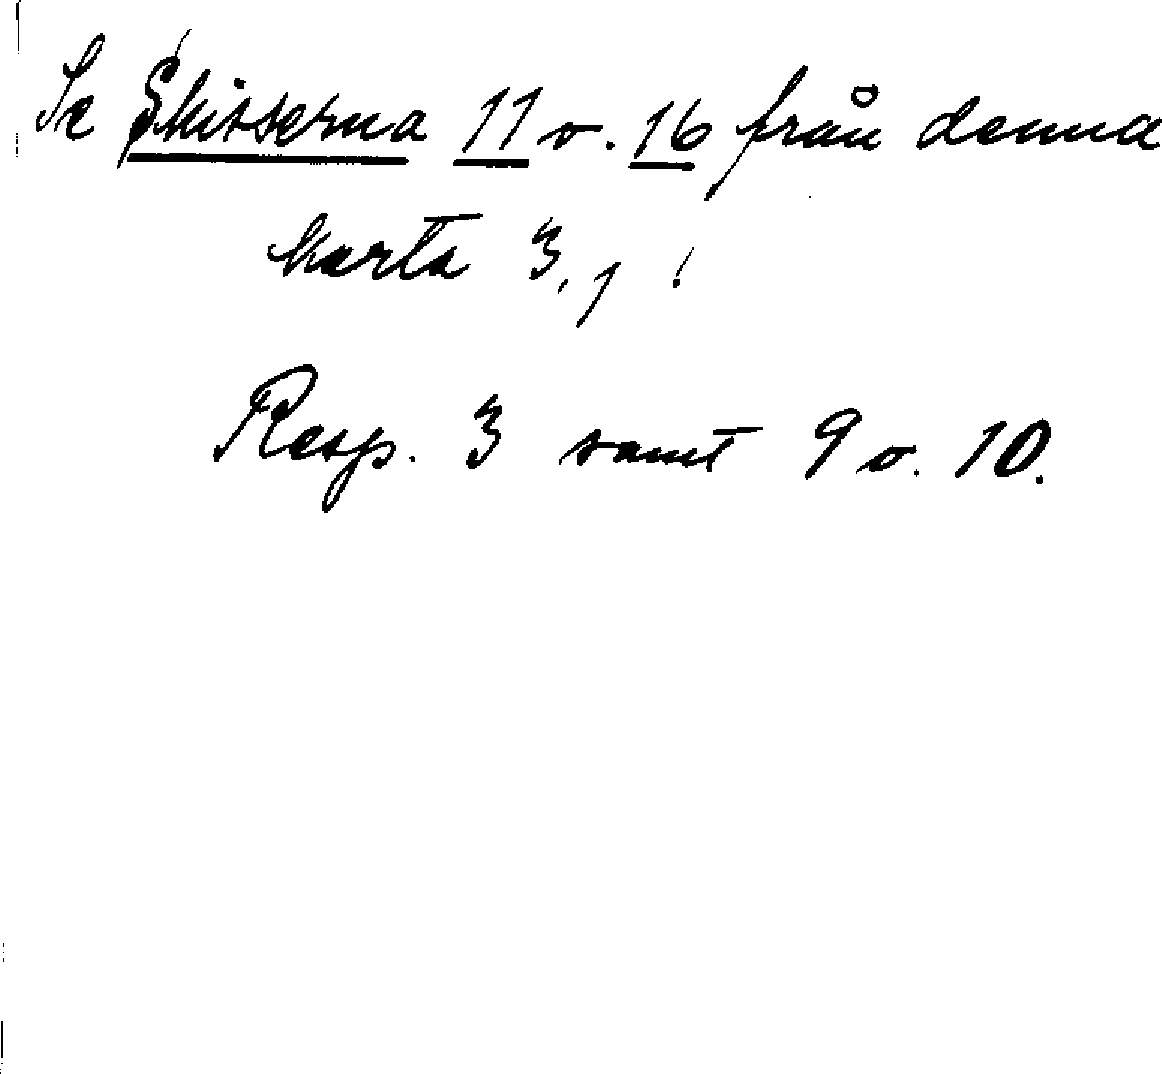 Se Skisserna 11 o. 16 från denna
karta 3,1!
Resp. 3 samt 9 o. 10.